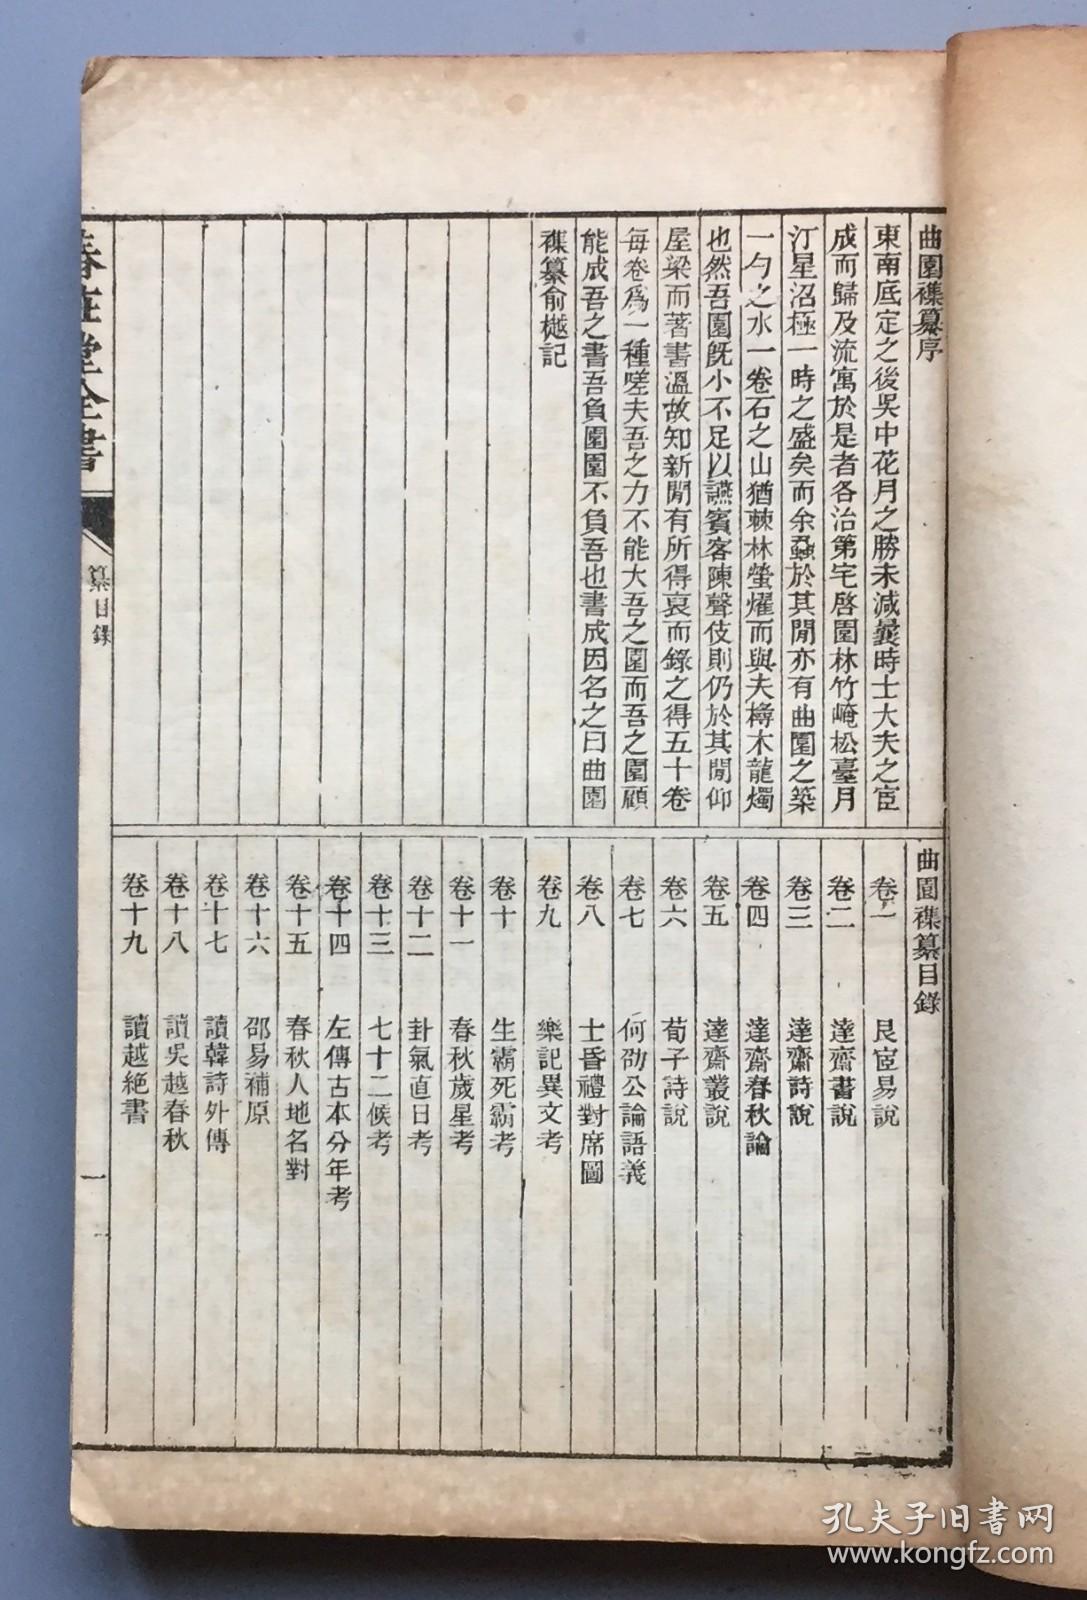 曲園襍纂序
東南底定之後吳中花月之勝未減曩時士大夫之宦
成而歸及流寓於是者各治第宅啓園林竹崦松臺月
汀星沼極一時之盛矣而余蝨於其閒亦有曲園之築
一勺之水一卷石之山猶棘林螢燿而與夫樳木龍燭
也然吾園旣小不足以讌賓客陳聲伎則仍於其閒仰
屋梁而著書溫故知新閒有所得裒而錄之得五十卷
每卷爲一種嗟夫吾之力不能大吾之園而吾之園顧
能成吾之書吾負園園不負吾也書成因名之曰曲園
襍纂俞樾記
曲園襍纂目錄
卷一 艮宧易說
卷二 達齋書說
卷三 達齋詩說
卷四 達齋春秋論
卷五 達齋叢說
卷六 荀子詩說
卷七 何劭公論語義
卷八 士昏禮對席圖
卷九 樂記異文考
卷十 生霸死霸考
卷十一 春秋歲星考
卷十二 卦氣直日考
卷十三 七十二候考
卷十四 左傳古本分年考
卷十五 春秋人地名對
卷十六 邵易補原
卷十七 讀韓詩外傳
卷十八 讀吳越春秋
卷十九 讀越絕書
春在堂全書
纂目錄
一
孔夫子旧书网
www.kongfz.com